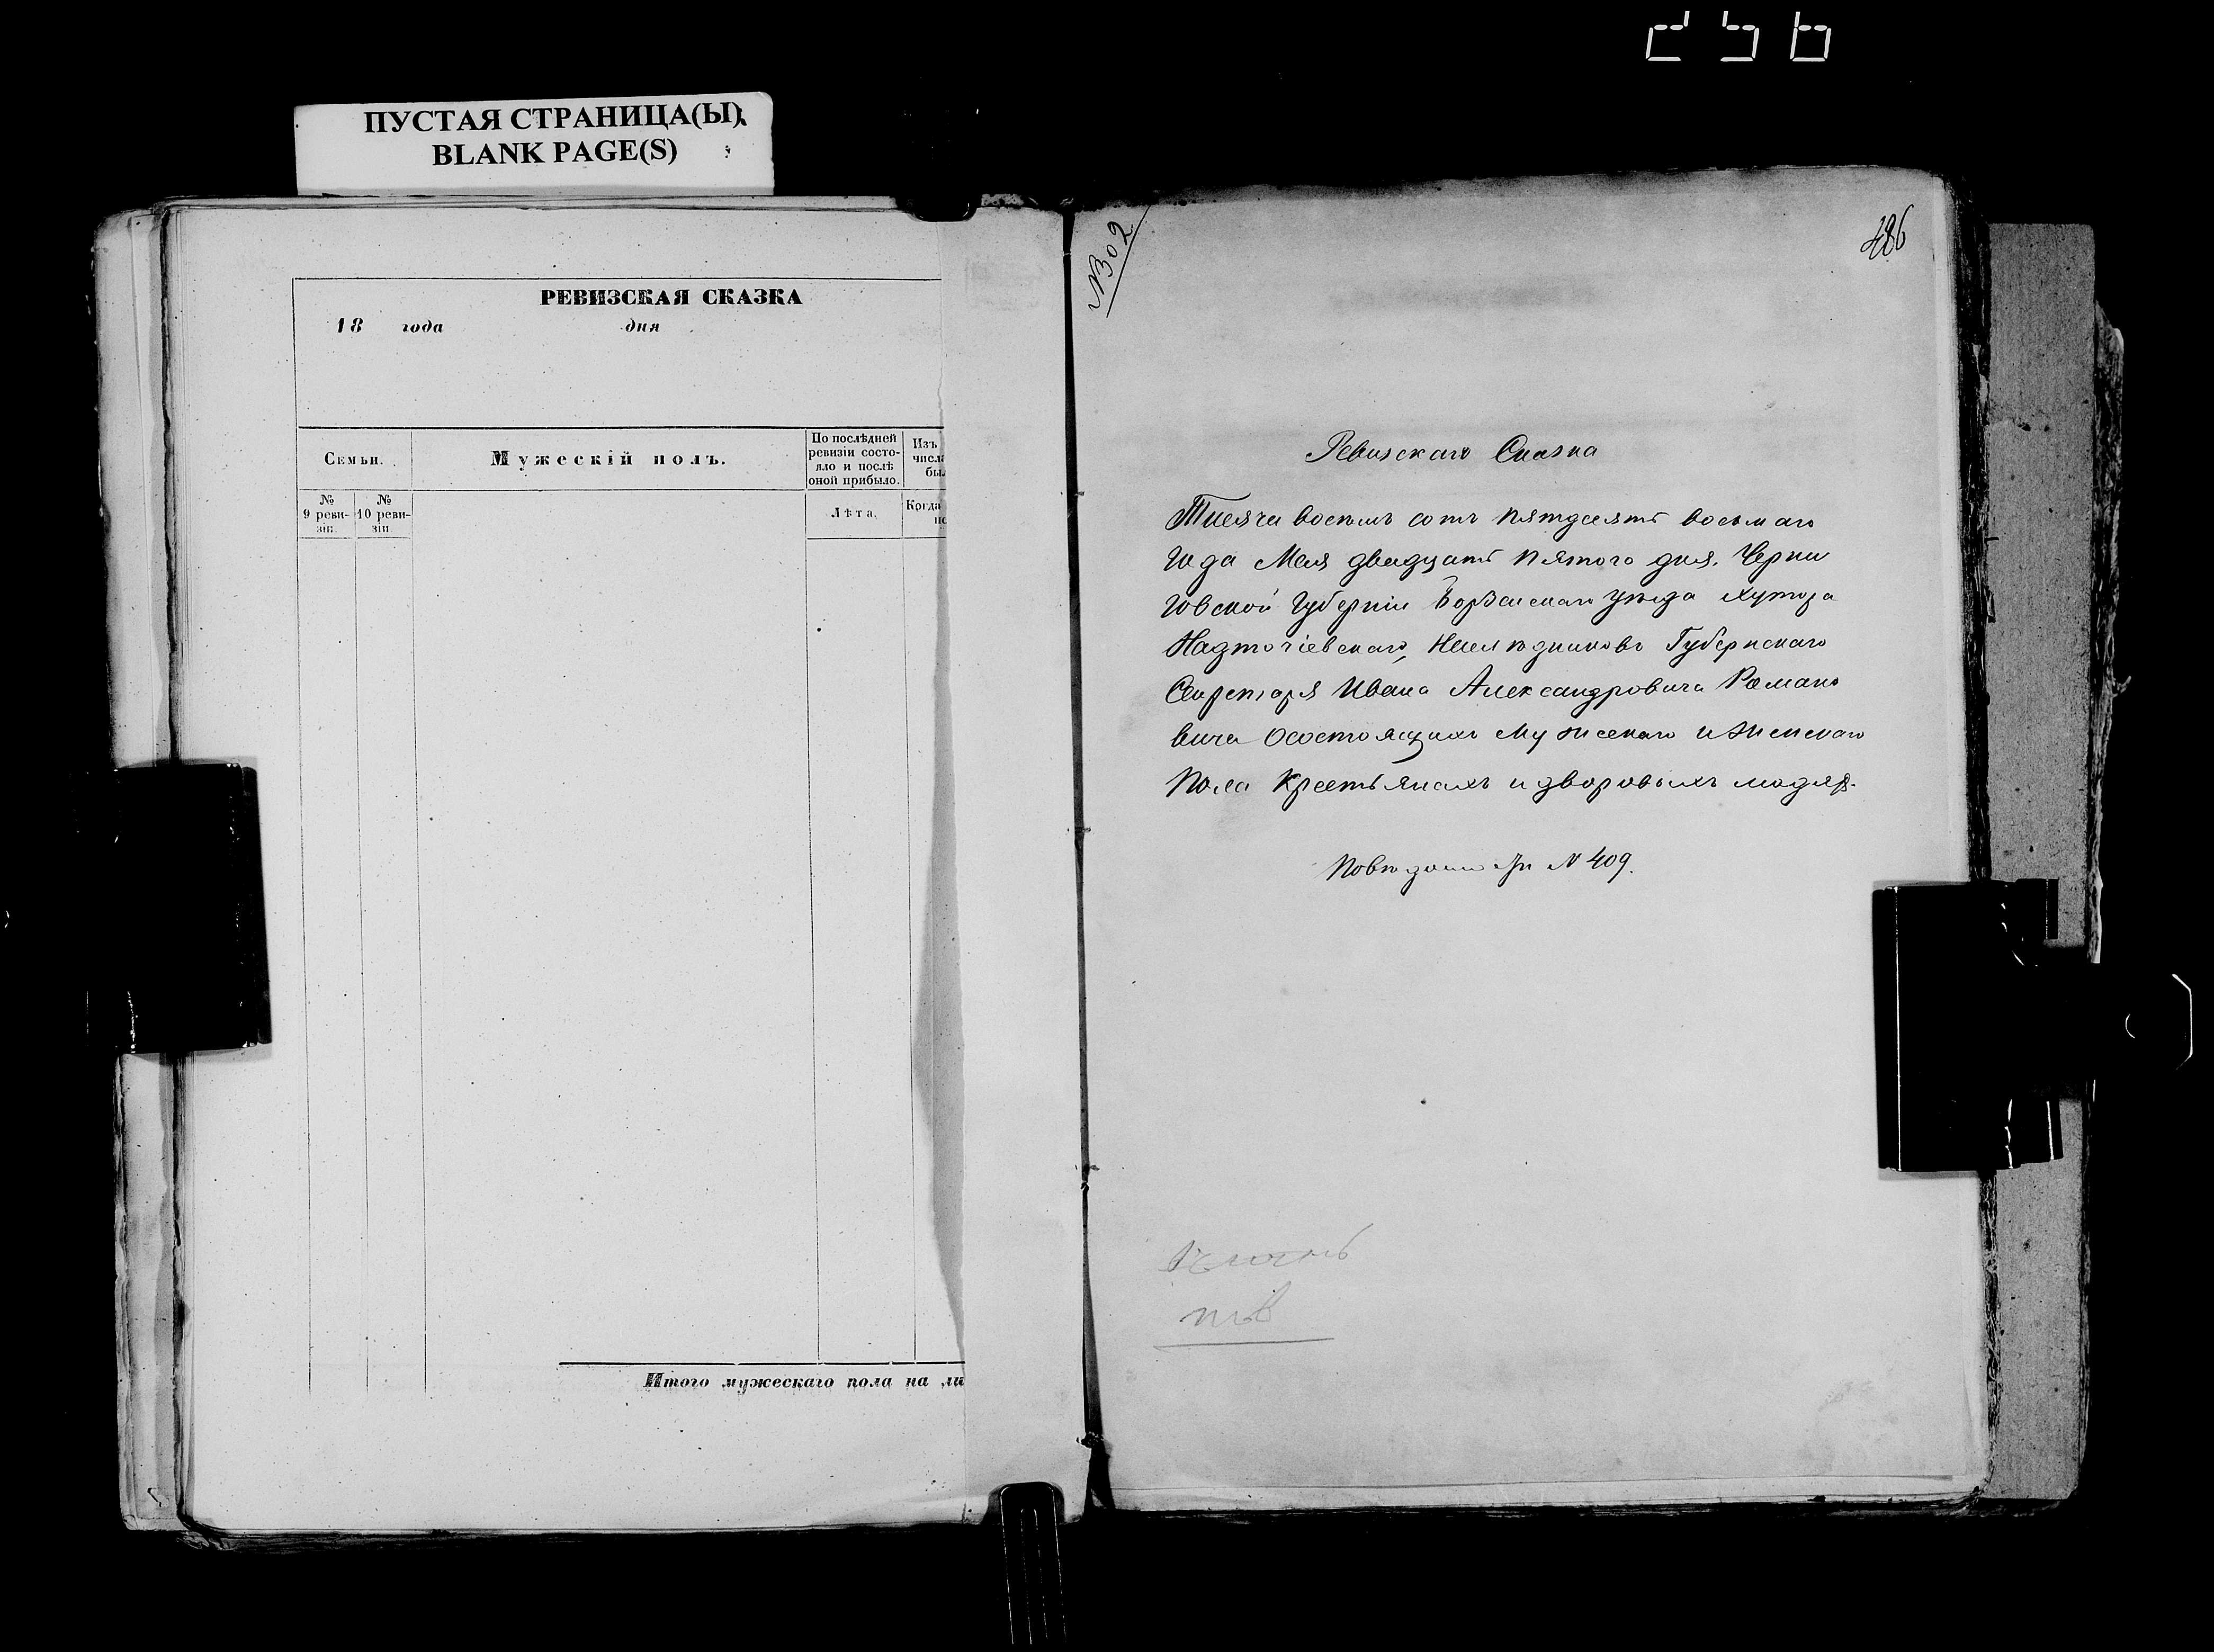 ПУСТАЯ СТРАНИЦА(Ы)
BLANK PAGE(S)
РЕВИЗСКАЯ СКАЗКА
18 года дня
Семьи.
Мужескій полъ.
По послѣдней
ревизіи состо-
яло и послѣ
оной прибыло.
Изъ
числа
№
9 реви-
зіи.
№
10 реви-
зіи
Лѣта.
Когда
Итого мужескаго пола на ли
№302
486
Ревизская Сказка
Тысяча восемь сотъ пятдесятъ восьмаго
года Мая двадцать пятого дня. Черни
говской Губерніи Борзенскаго уѣзда хутора
Надточіевскаго, Наслѣдниковъ Губернскаго
Секретаря Ивана Александровича Романо
вича осостоящихъ мужескаго и женскаго
пола крестьянахъ и дворовыхъ людях.
№ 409.